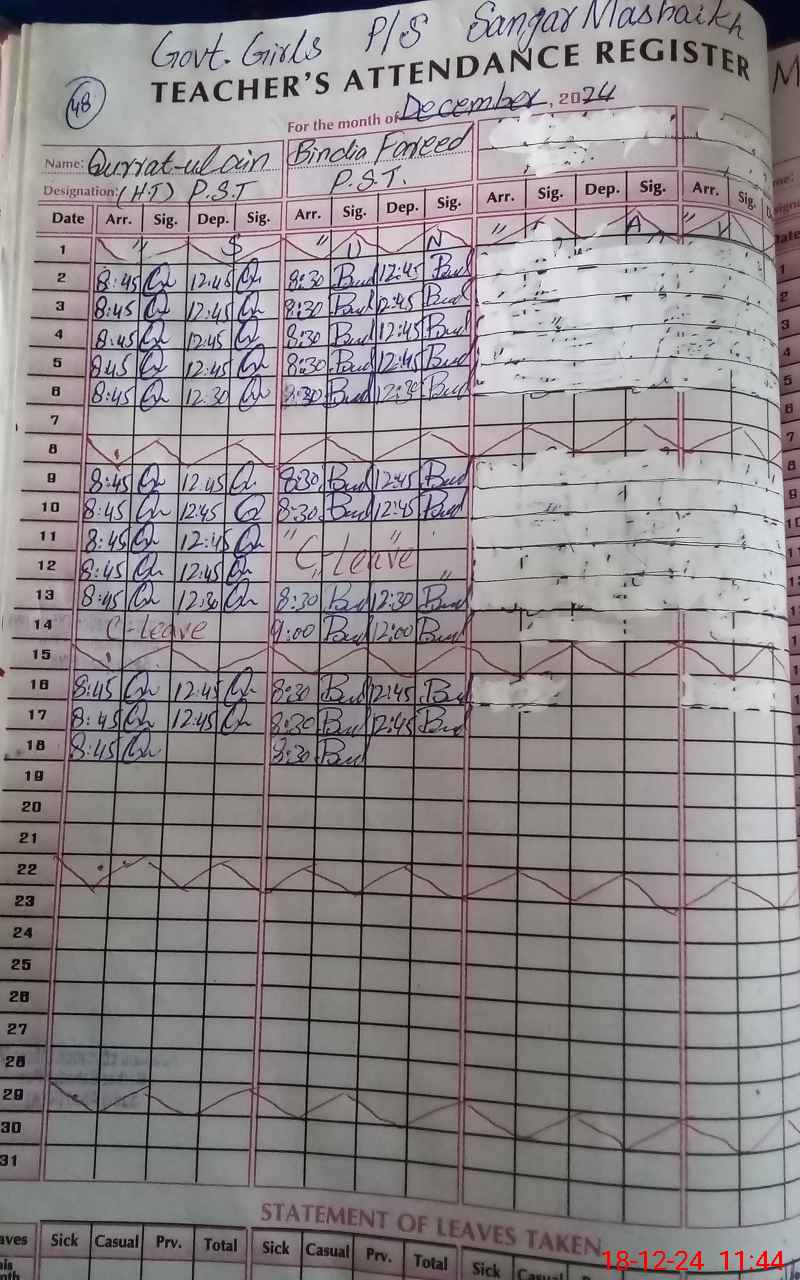 Govt. Girls P/S Sangar Mashaikh
TEACHER'S ATTENDANCE REGISTER
48
For the month of December, 2024
Name: Qurrat-ul-ain Bindia Fareed
Designation: (H.T) P.S.T P.S.T.
Date Arr. Sig. Dep. Sig. Arr. Sig. Dep. Sig. Arr. Sig. Dep. Sig. Arr. Sig.
1 " S " U N " A "
2 8:45 12:45 8:30 12:45
3 8:45 12:45 8:30 12:45
4 8:45 12:45 8:30 12:45
5 8:45 12:45 8:30 12:45
6 8:45 12:30 8:30 12:30
7
8
9 8:45 12:45 8:30 12:45
10 8:45 12:45 8:30 12:45
11 8:45 12:45 " C-Leave "
12 8:45 12:45 " "
13 8:45 12:30 8:30 12:30
14 C-Leave 9:00 12:00
15
16 8:45 12:45 8:30 12:45
17 8:45 12:45 8:30 12:45
18 8:45 8:30
19
20
21
22
23
24
25
26
27
28
29
30
31
STATEMENT OF LEAVES TAKEN
aves Sick Casual Prv. Total Sick Casual Prv. Total Sick
18-12-24 11:44